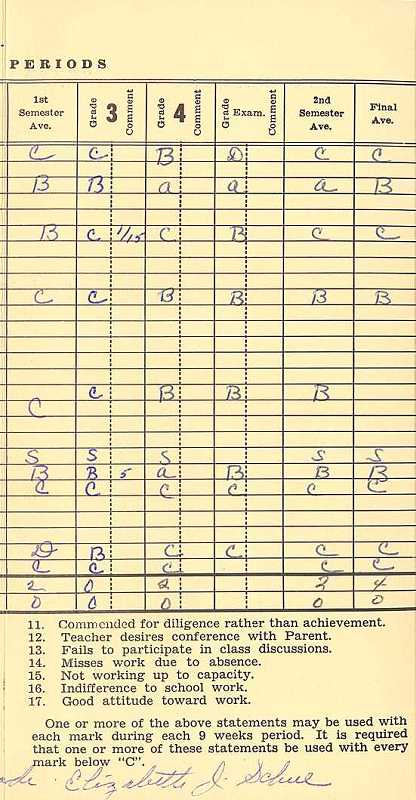 PERIODS
1st Semester Ave. Grade 3 Comment Grade 4 Comment Grade Exam. Comment 2nd Semester Ave. Final Ave.
C C B D C C
B B a a a B
B C 1/15 C B C C
C C B B B B
C C B B B
S S S S S
B B 5 a B B B
C C C C C C
D B C C C C
C C C C C
2 0 2 2 4
0 0 0 0 0
11. Commended for diligence rather than achievement.
12. Teacher desires conference with Parent.
13. Fails to participate in class discussions.
14. Misses work due to absence.
15. Not working up to capacity.
16. Indifference to school work.
17. Good attitude toward work.
One or more of the above statements may be used with
each mark during each 9 weeks period. It is required
that one or more of these statements be used with every
mark below "C".
Elizabeth J.